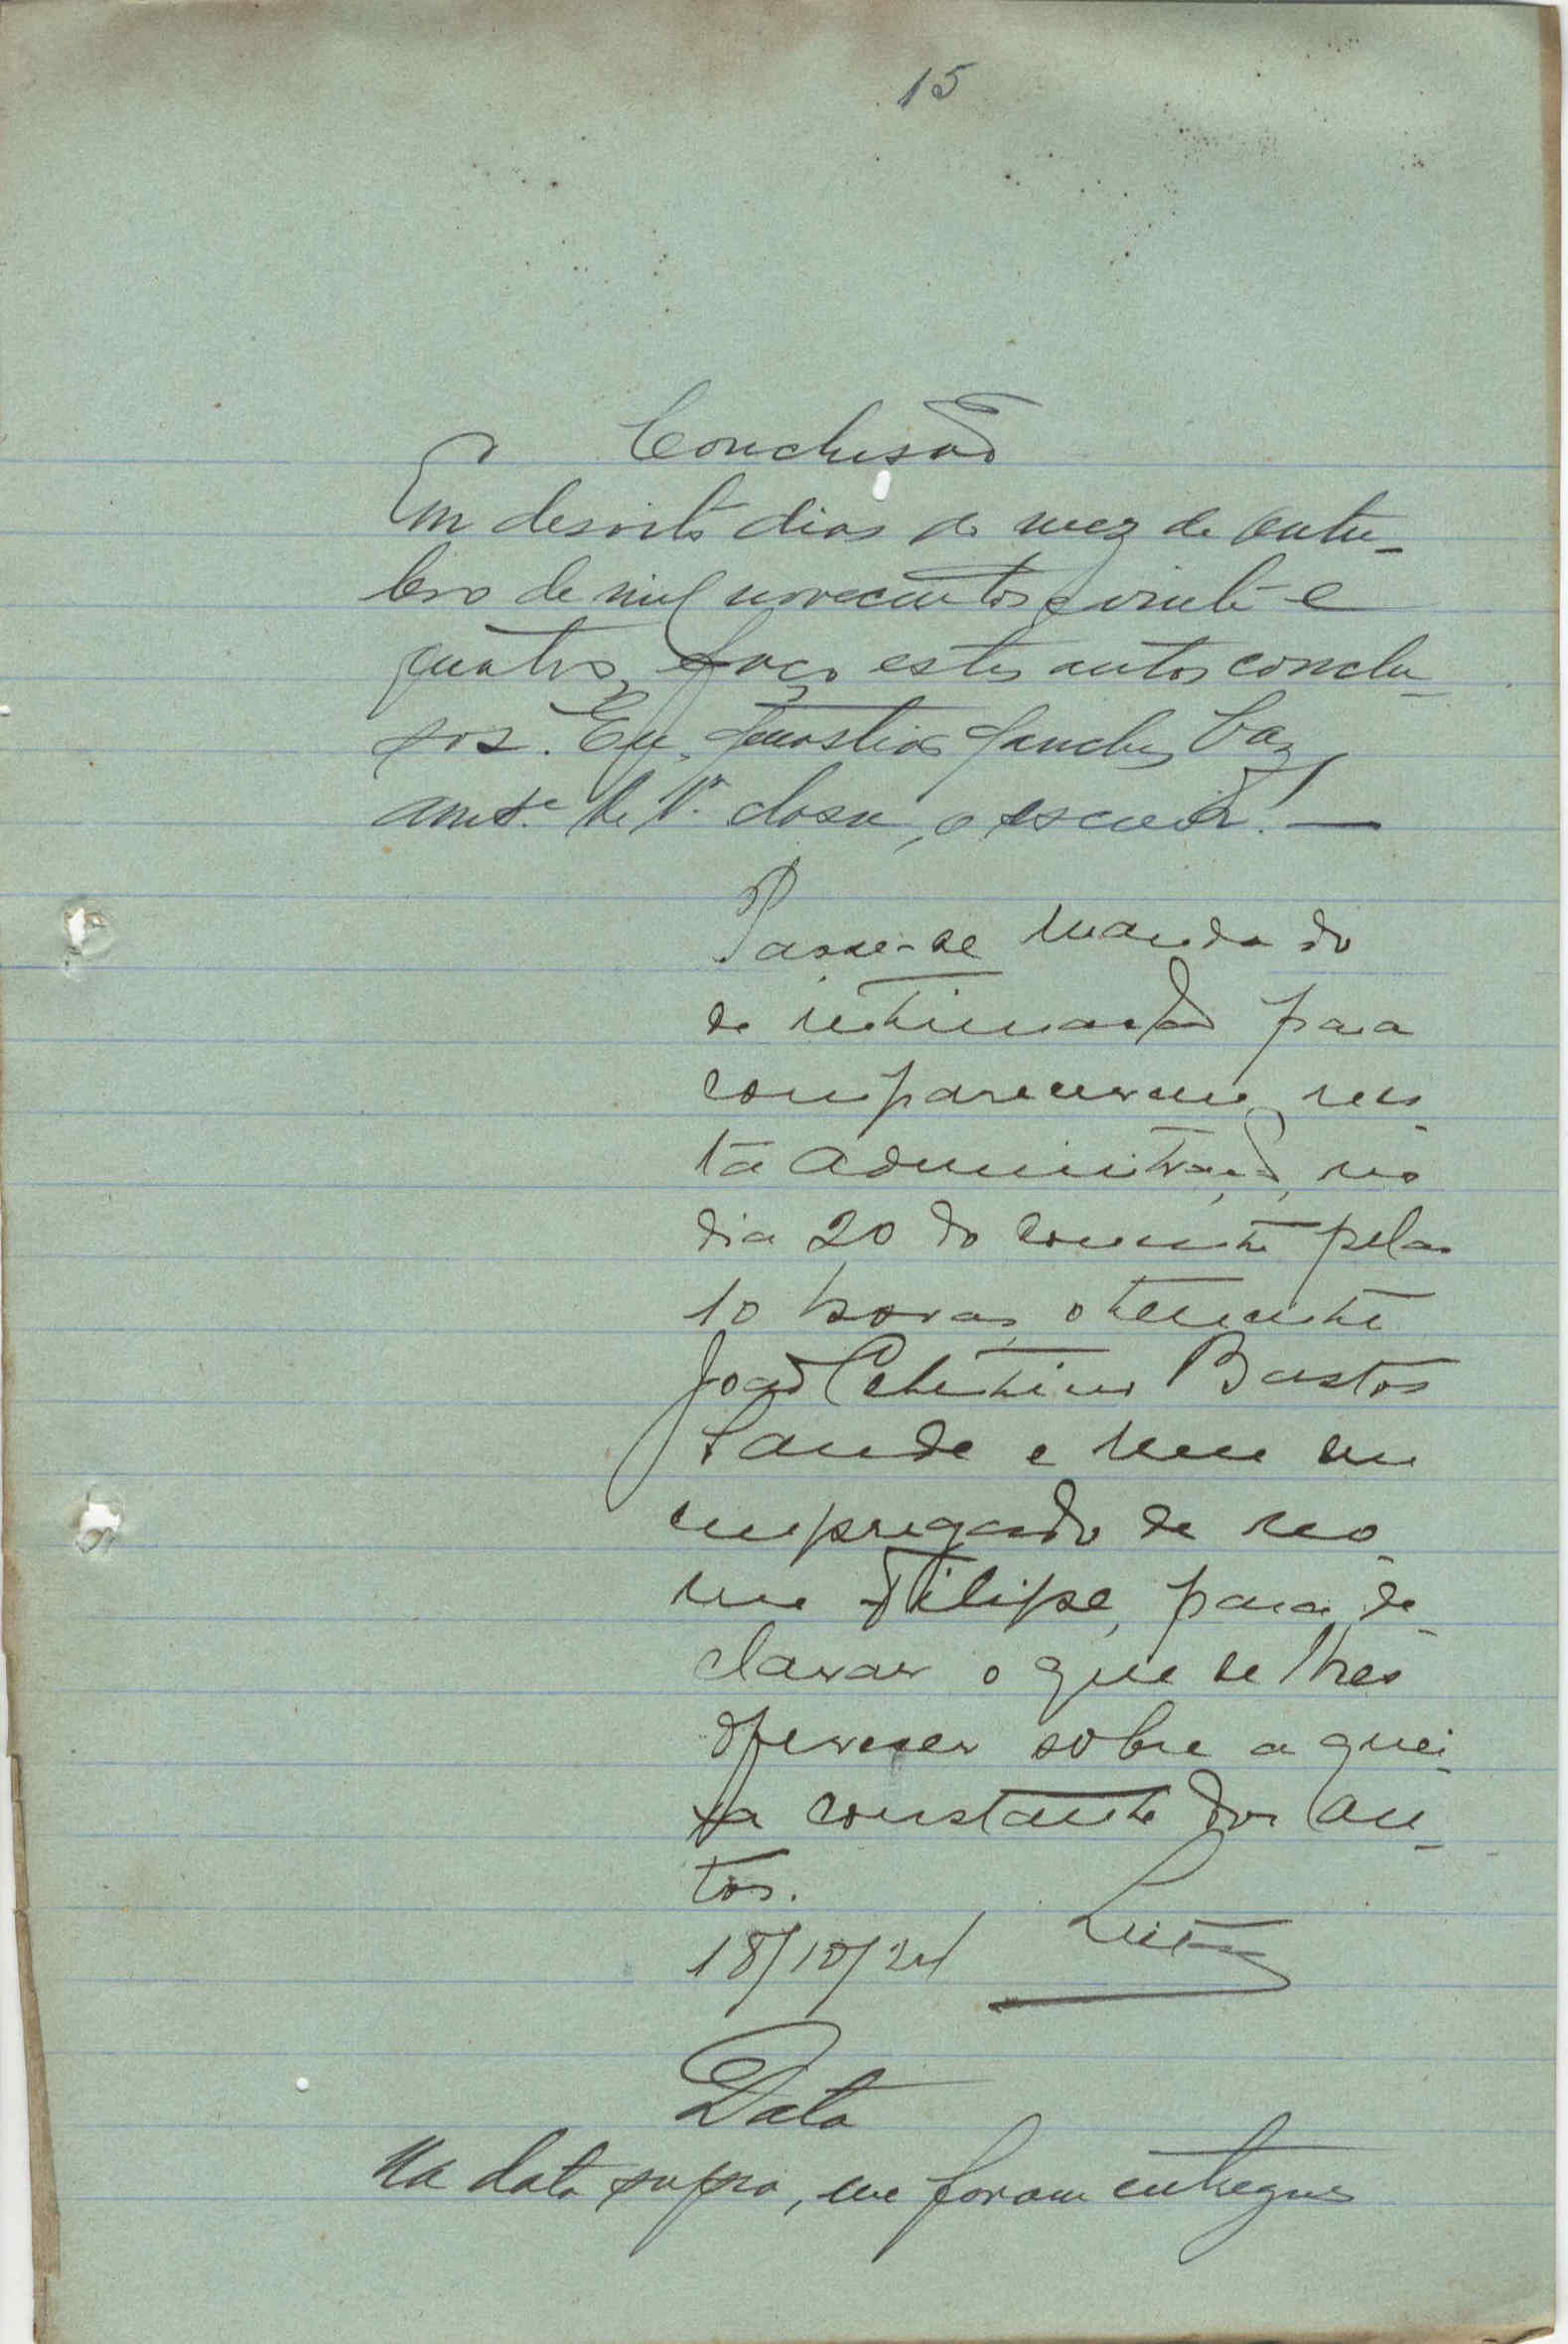 15
Conclusão
Em desoito dias do mez de outu-
bro de mil novecentos e vinte e
quatro, faço estes autos conclu-
sos. Eu, Sanches Vaz,
de 1ª classe, o escrevi. —
Passe-se mandado
de intimação para
comparecerem, nes-
ta administração, no
dia 20 do corrente pelas
10 horas, o tenente
João Celestino Bastos
Sande e um seu
empregado de no-
me Filipe, para de-
clarar o que se lhes
oferecer sobre a quei-
xa constante dos au-
tos.
18/10/24
Data
Na data supra, me foram entregues